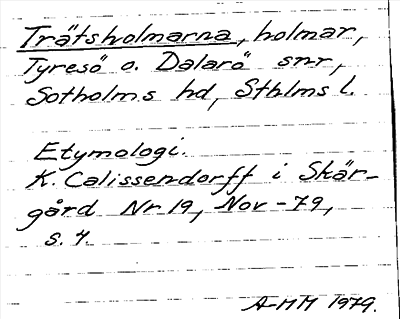 Trätsholmarna, holmar,
Tyresö o. Dalarö snr,
Sotholms hd, Sthlms l.
Etymologi.
K. Calissendorff i Skär-
gård Nr 19, Nov -79,
s. 4.
A-MM 1979.